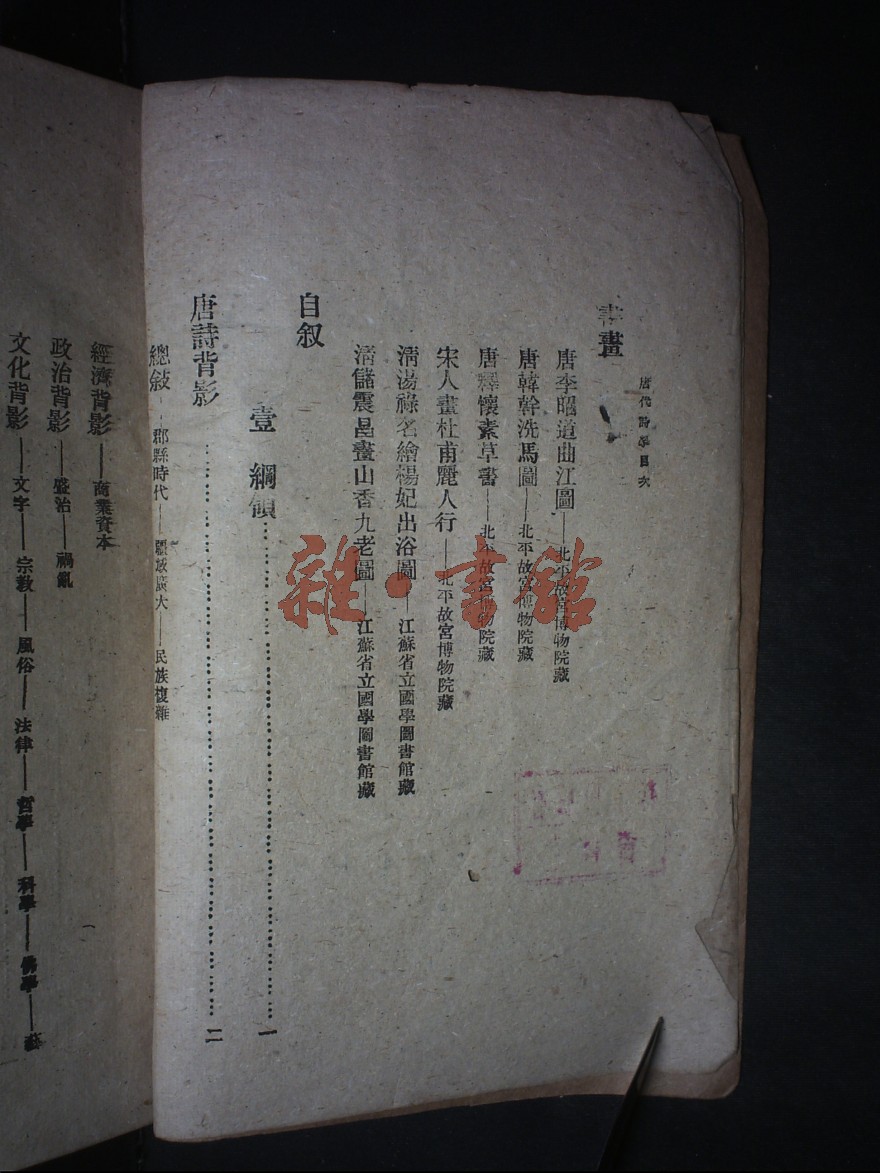 唐代詩學目次
書畫
唐李昭道曲江圖——北平故宮博物院藏
唐韓幹洗馬圖——北平故宮博物院藏
唐釋懷素草書——北平故宮博物院藏
宋人畫杜甫麗人行——北平故宮博物院藏
清湯祿名繪楊妃出浴圖——江蘇省立國學圖書館藏
清儲震昌畫山香九老圖——江蘇省立國學圖書館藏
自叙
壹 綱領……一
唐詩背影……二
總敍——郡縣時代——疆域廣大——民族複雜
經濟背影——商業資本
政治背影——盛治——禍亂
文化背影——文字——宗教——風俗——法律——哲學——科學——佛學——藝
雜·書館